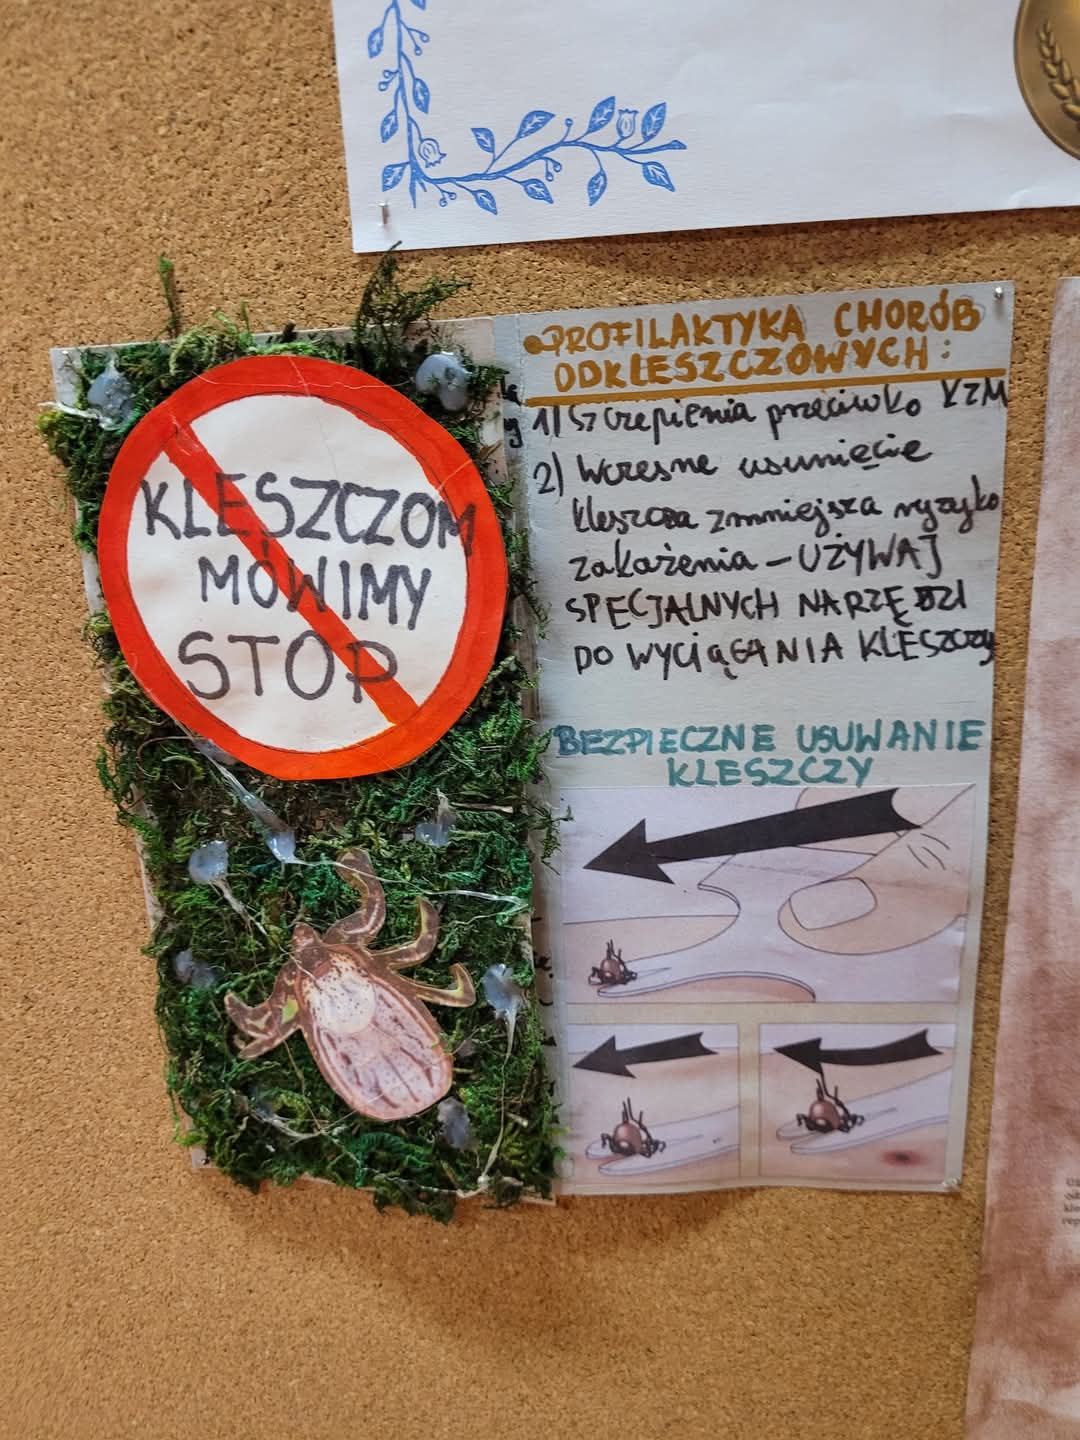 KLESZCZOM
MÓWIMY
STOP
PROFILAKTYKA CHORÓB
ODKLESZCZOWYCH:
1) Szczepienia przeciwko KZM
2) Wczesne usunięcie
kleszcza zmniejsza ryzyko
zakażenia - UŻYWAJ
SPECJALNYCH NARZĘDZI
DO WYCIĄGANIA KLESZCZY
BEZPIECZNE USUWANIE
KLESZCZY